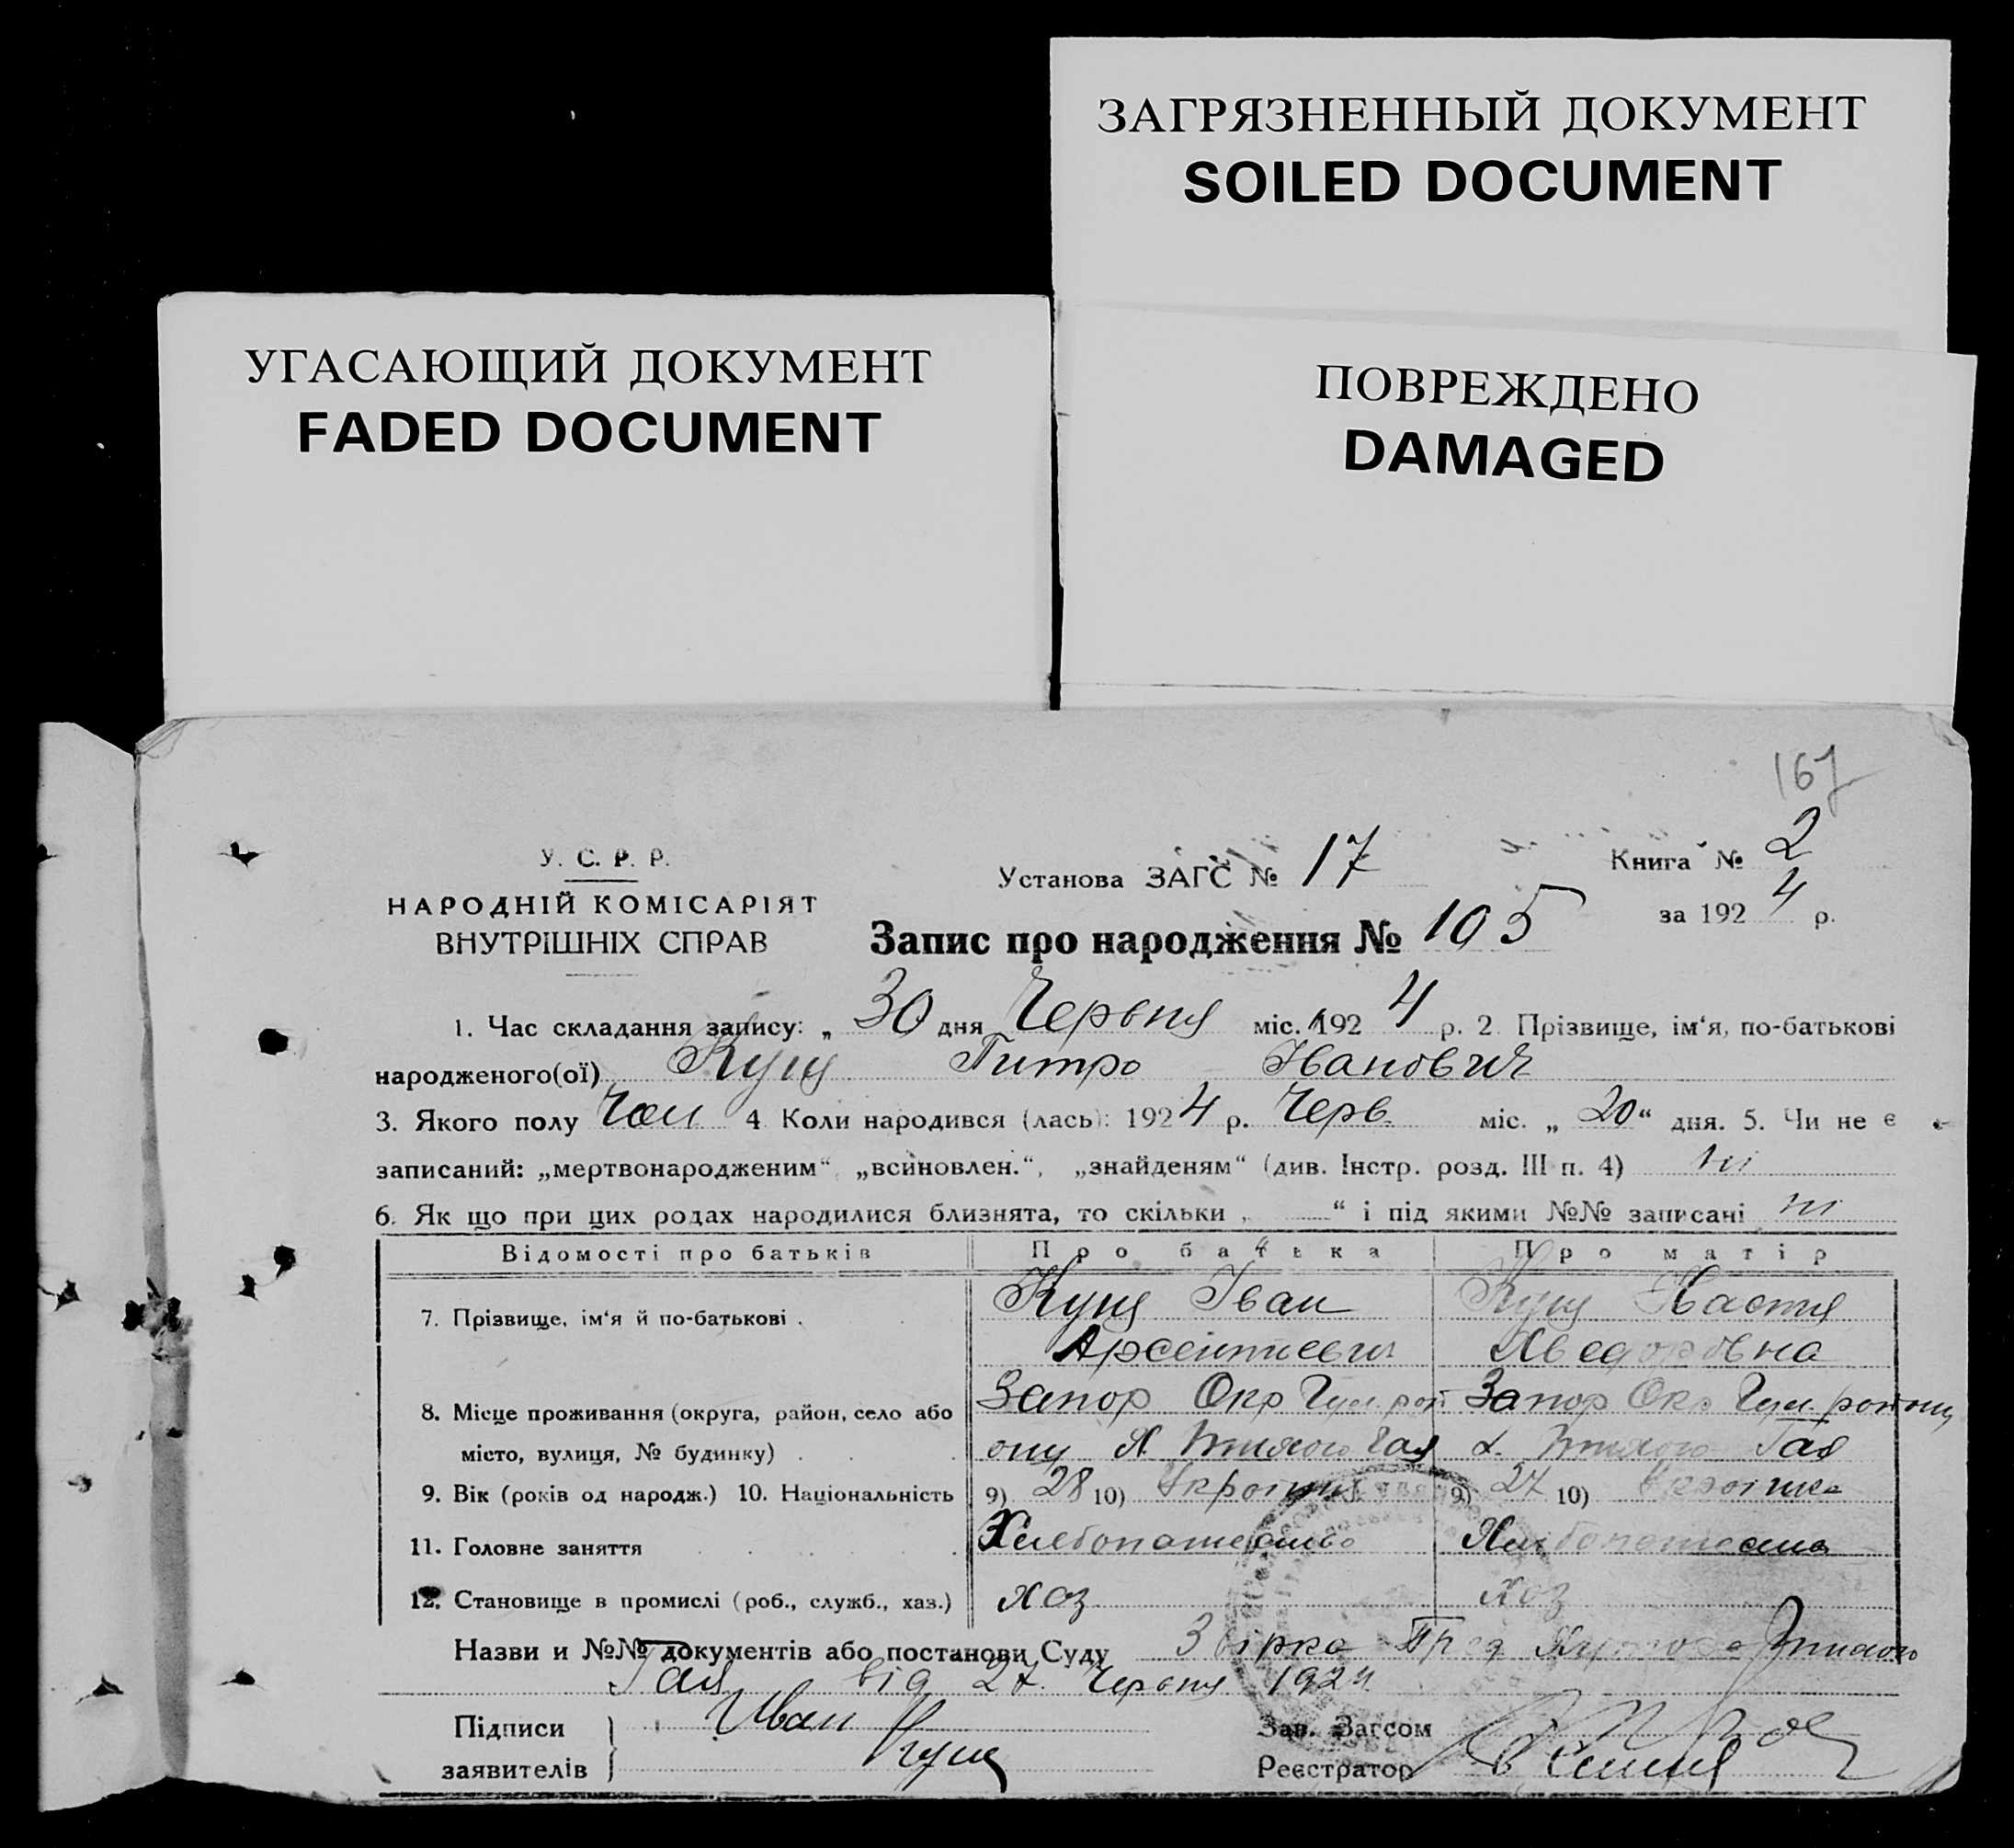 ЗАГРЯЗНЕННЫЙ ДОКУМЕНТ
SOILED DOCUMENT
УГАСАЮЩИЙ ДОКУМЕНТ
FADED DOCUMENT
ПОВРЕЖДЕНО
DAMAGED
167
У. С. Р. Р.
НАРОДНІЙ КОМІСАРІЯТ
ВНУТРІШНІХ СПРАВ
Установа ЗАГС № 17
Книга № 2
за 1924 р.
Запис про народження № 105
1. Час складання запису: „ 30 дня Червня міс. 1924 р. 2. Прізвище, ім‘я, по-батькові
народженого(ої) Кущ Питро Іванович
3. Якого полу Чол 4 Коли народився (лась): 1924 р. Черв. міс. „ 20 “ дня. 5. Чи не є
записаний: „мертвонародженим“, „всиновлен.“, „знайденям“ (див. Інстр. розд. III п. 4) ні
6. Як що при цих родах народилися близнята, то скільки „ “ і під якими №№ записані ні
Відомості про батьків Про батька Про матір
7. Прізвище, ім‘я й по-батькові . Кущ Іван Кущ Настя
Арсентиевич Хведоровна
8. Місце проживання (округа, район, село або Запор Окр Гул. Запор Окр Гул.
місто, вулиця, № будинку) . . . Гая Гая
9. Вік (років од народж.) 10. Національність 9) 28 10) 9) 27 10)
11. Головне заняття . . . .
12. Становище в промислі (роб., служб., хаз.) хоз хоз
Назви и №№ документів або постанови Суду
Гая від 27 Червня 1924
Підписи Иван Зав. Загсом
заявителів Кущ Реєстратор